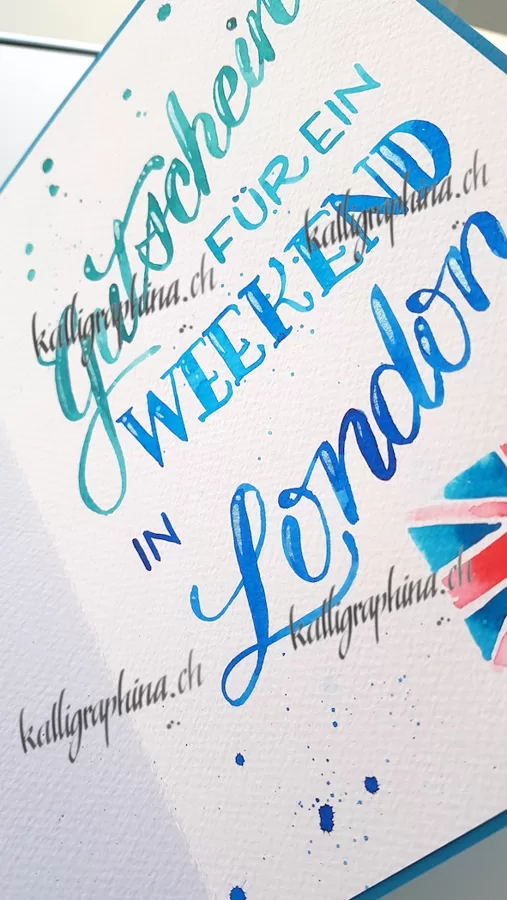 Gutschein
FÜR EIN
WEEKEND
IN
London
kalligraphina.ch
kalligraphina.ch
kalligraphina.ch
kalligraphina.ch